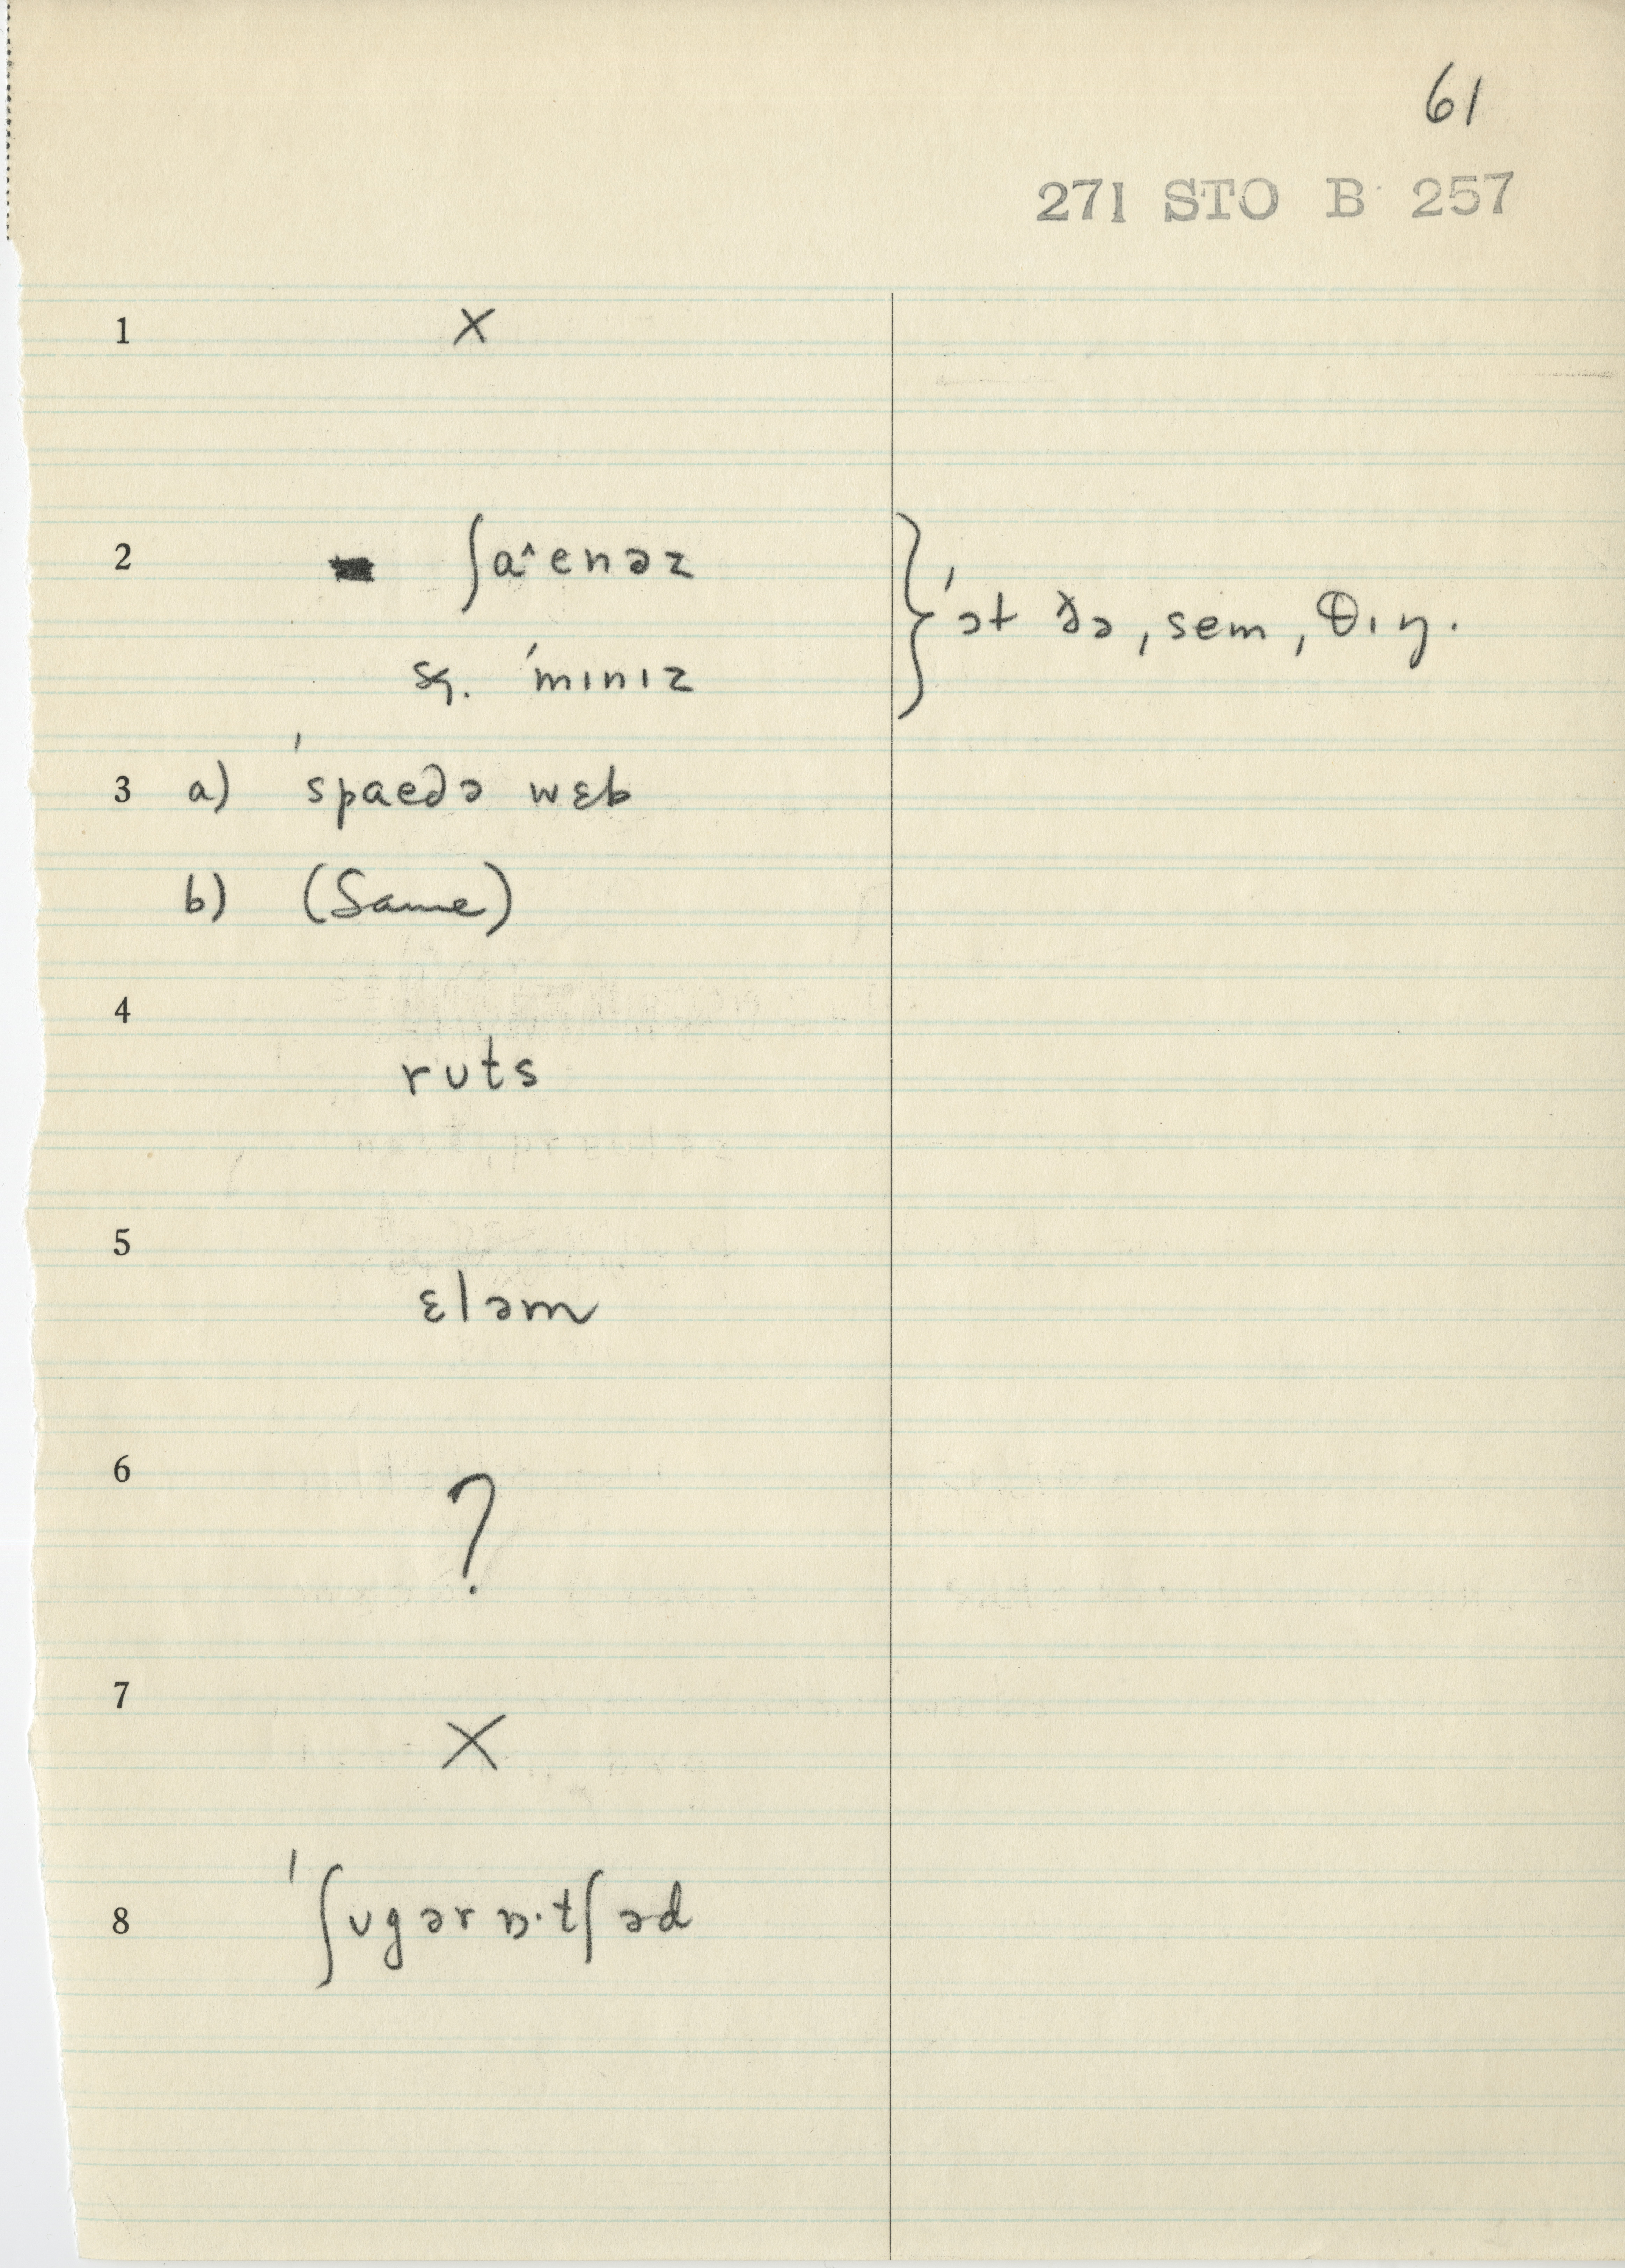 61
271 STO B 257
1 ×
2 ʃaˆenəz
sq. ˈmɪnɪz } ˈət ðə ˌsem ˌθɪŋ.
3 a) ˈspaedə wɛb
b) (Same)
4
rʊts
5
ɛləm
6
?
7
×
8 ˈʃʊgər ɒ·tʃəd